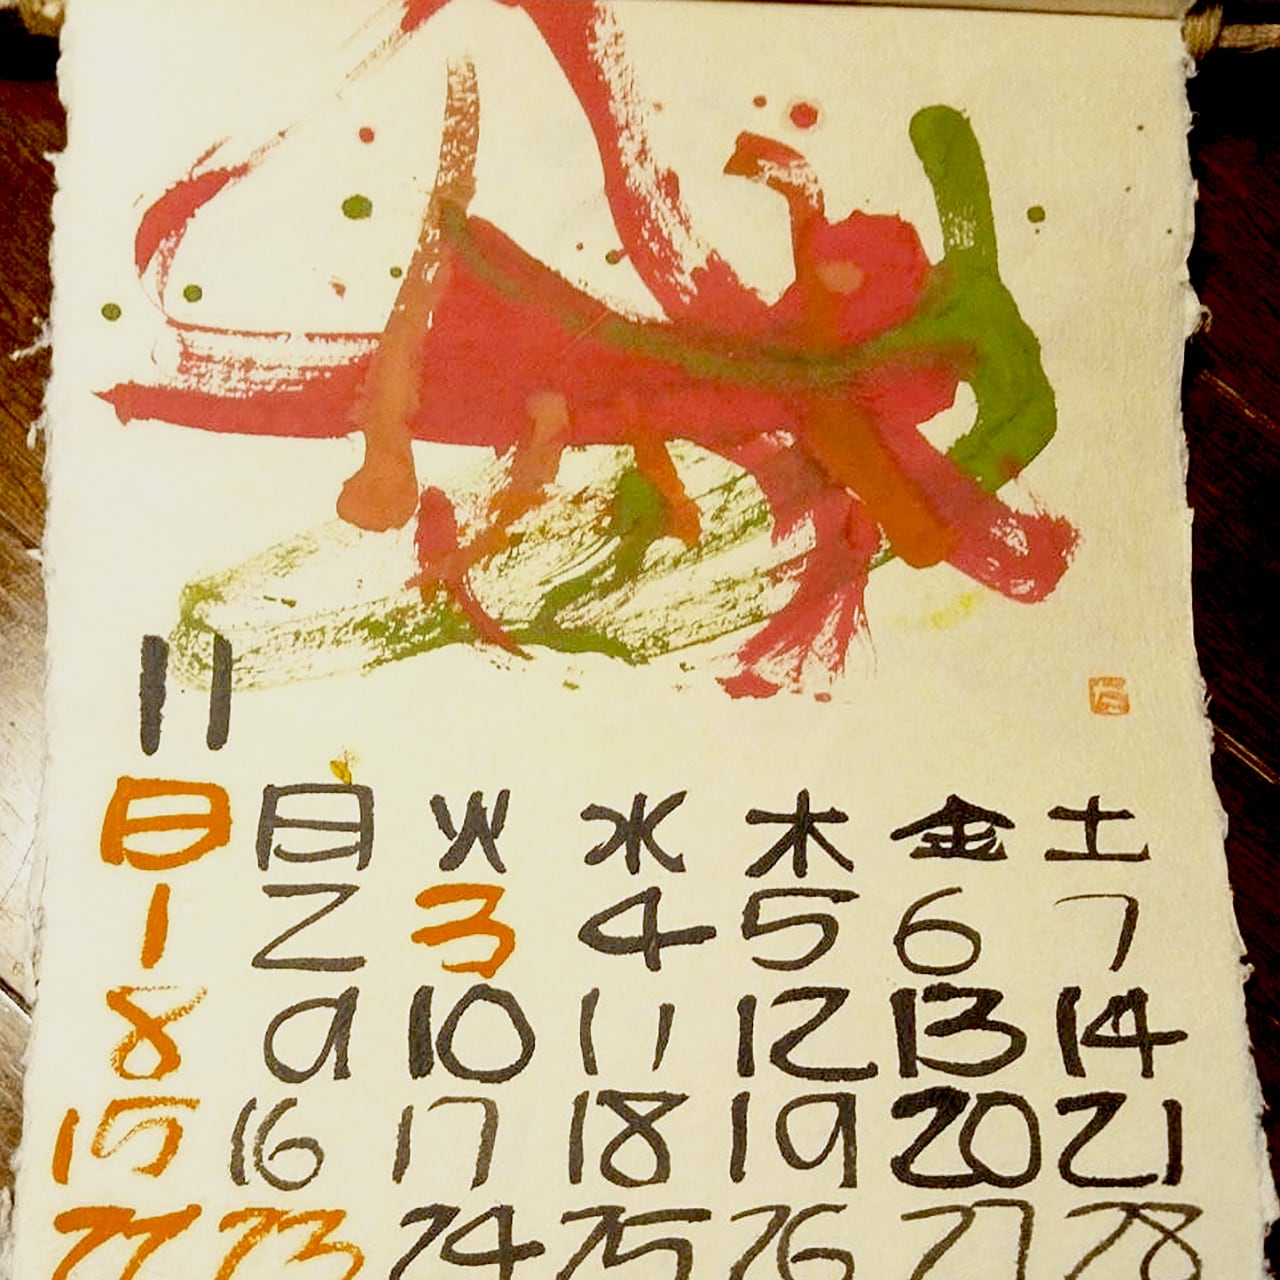 11
日 月 火 水 木 金 土
1 2 3 4 5 6 7
8 9 10 11 12 13 14
15 16 17 18 19 20 21
22 23 24 25 26 27 28